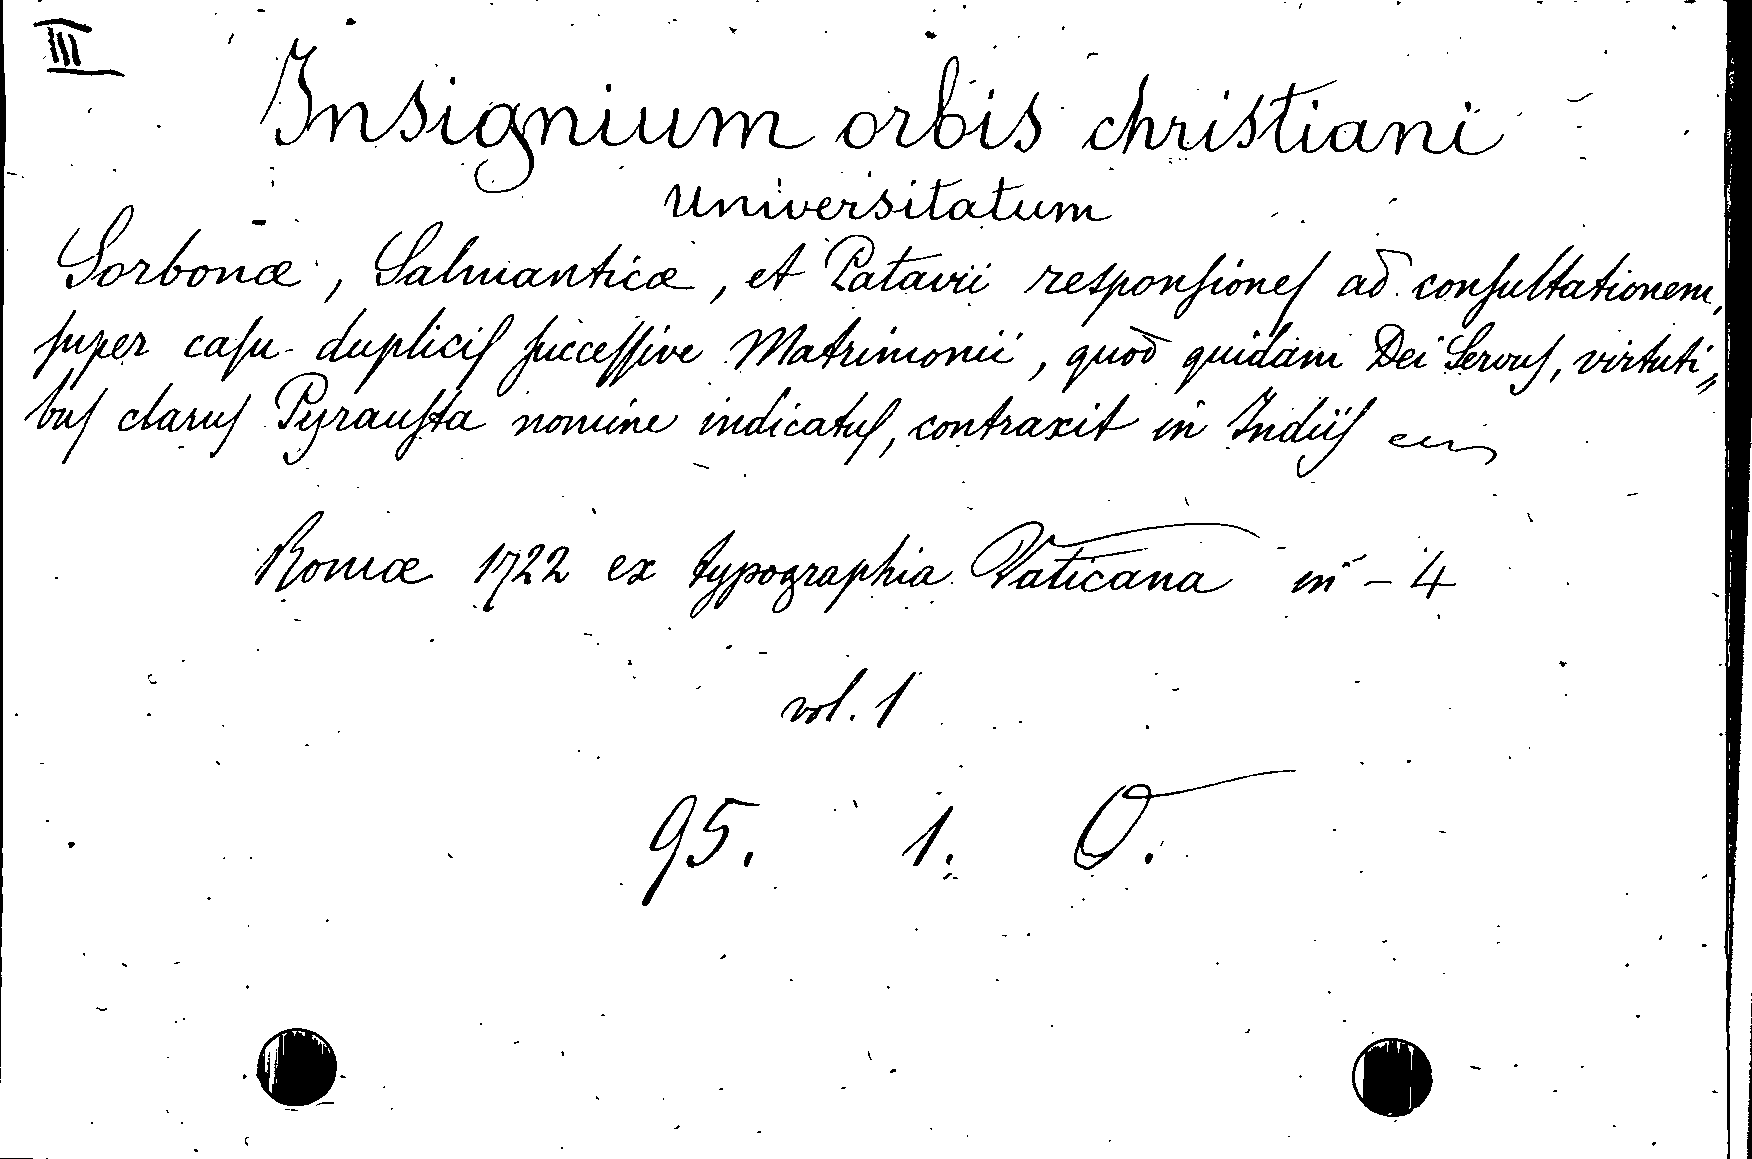 III
Insignium orbis christiani
Universitatum
Sorbonæ, Salmanticæ, et Patavii responsiones ad consultationem,
super casu duplicis successive Matrimonii, quod quidam Dei Servus, virtuti„
bus clarus Pyrausta nomine indicatus, contraxit in Indiis
Romæ 1722 ex typographia Vaticana in-4
vol. 1
95. 1. O.